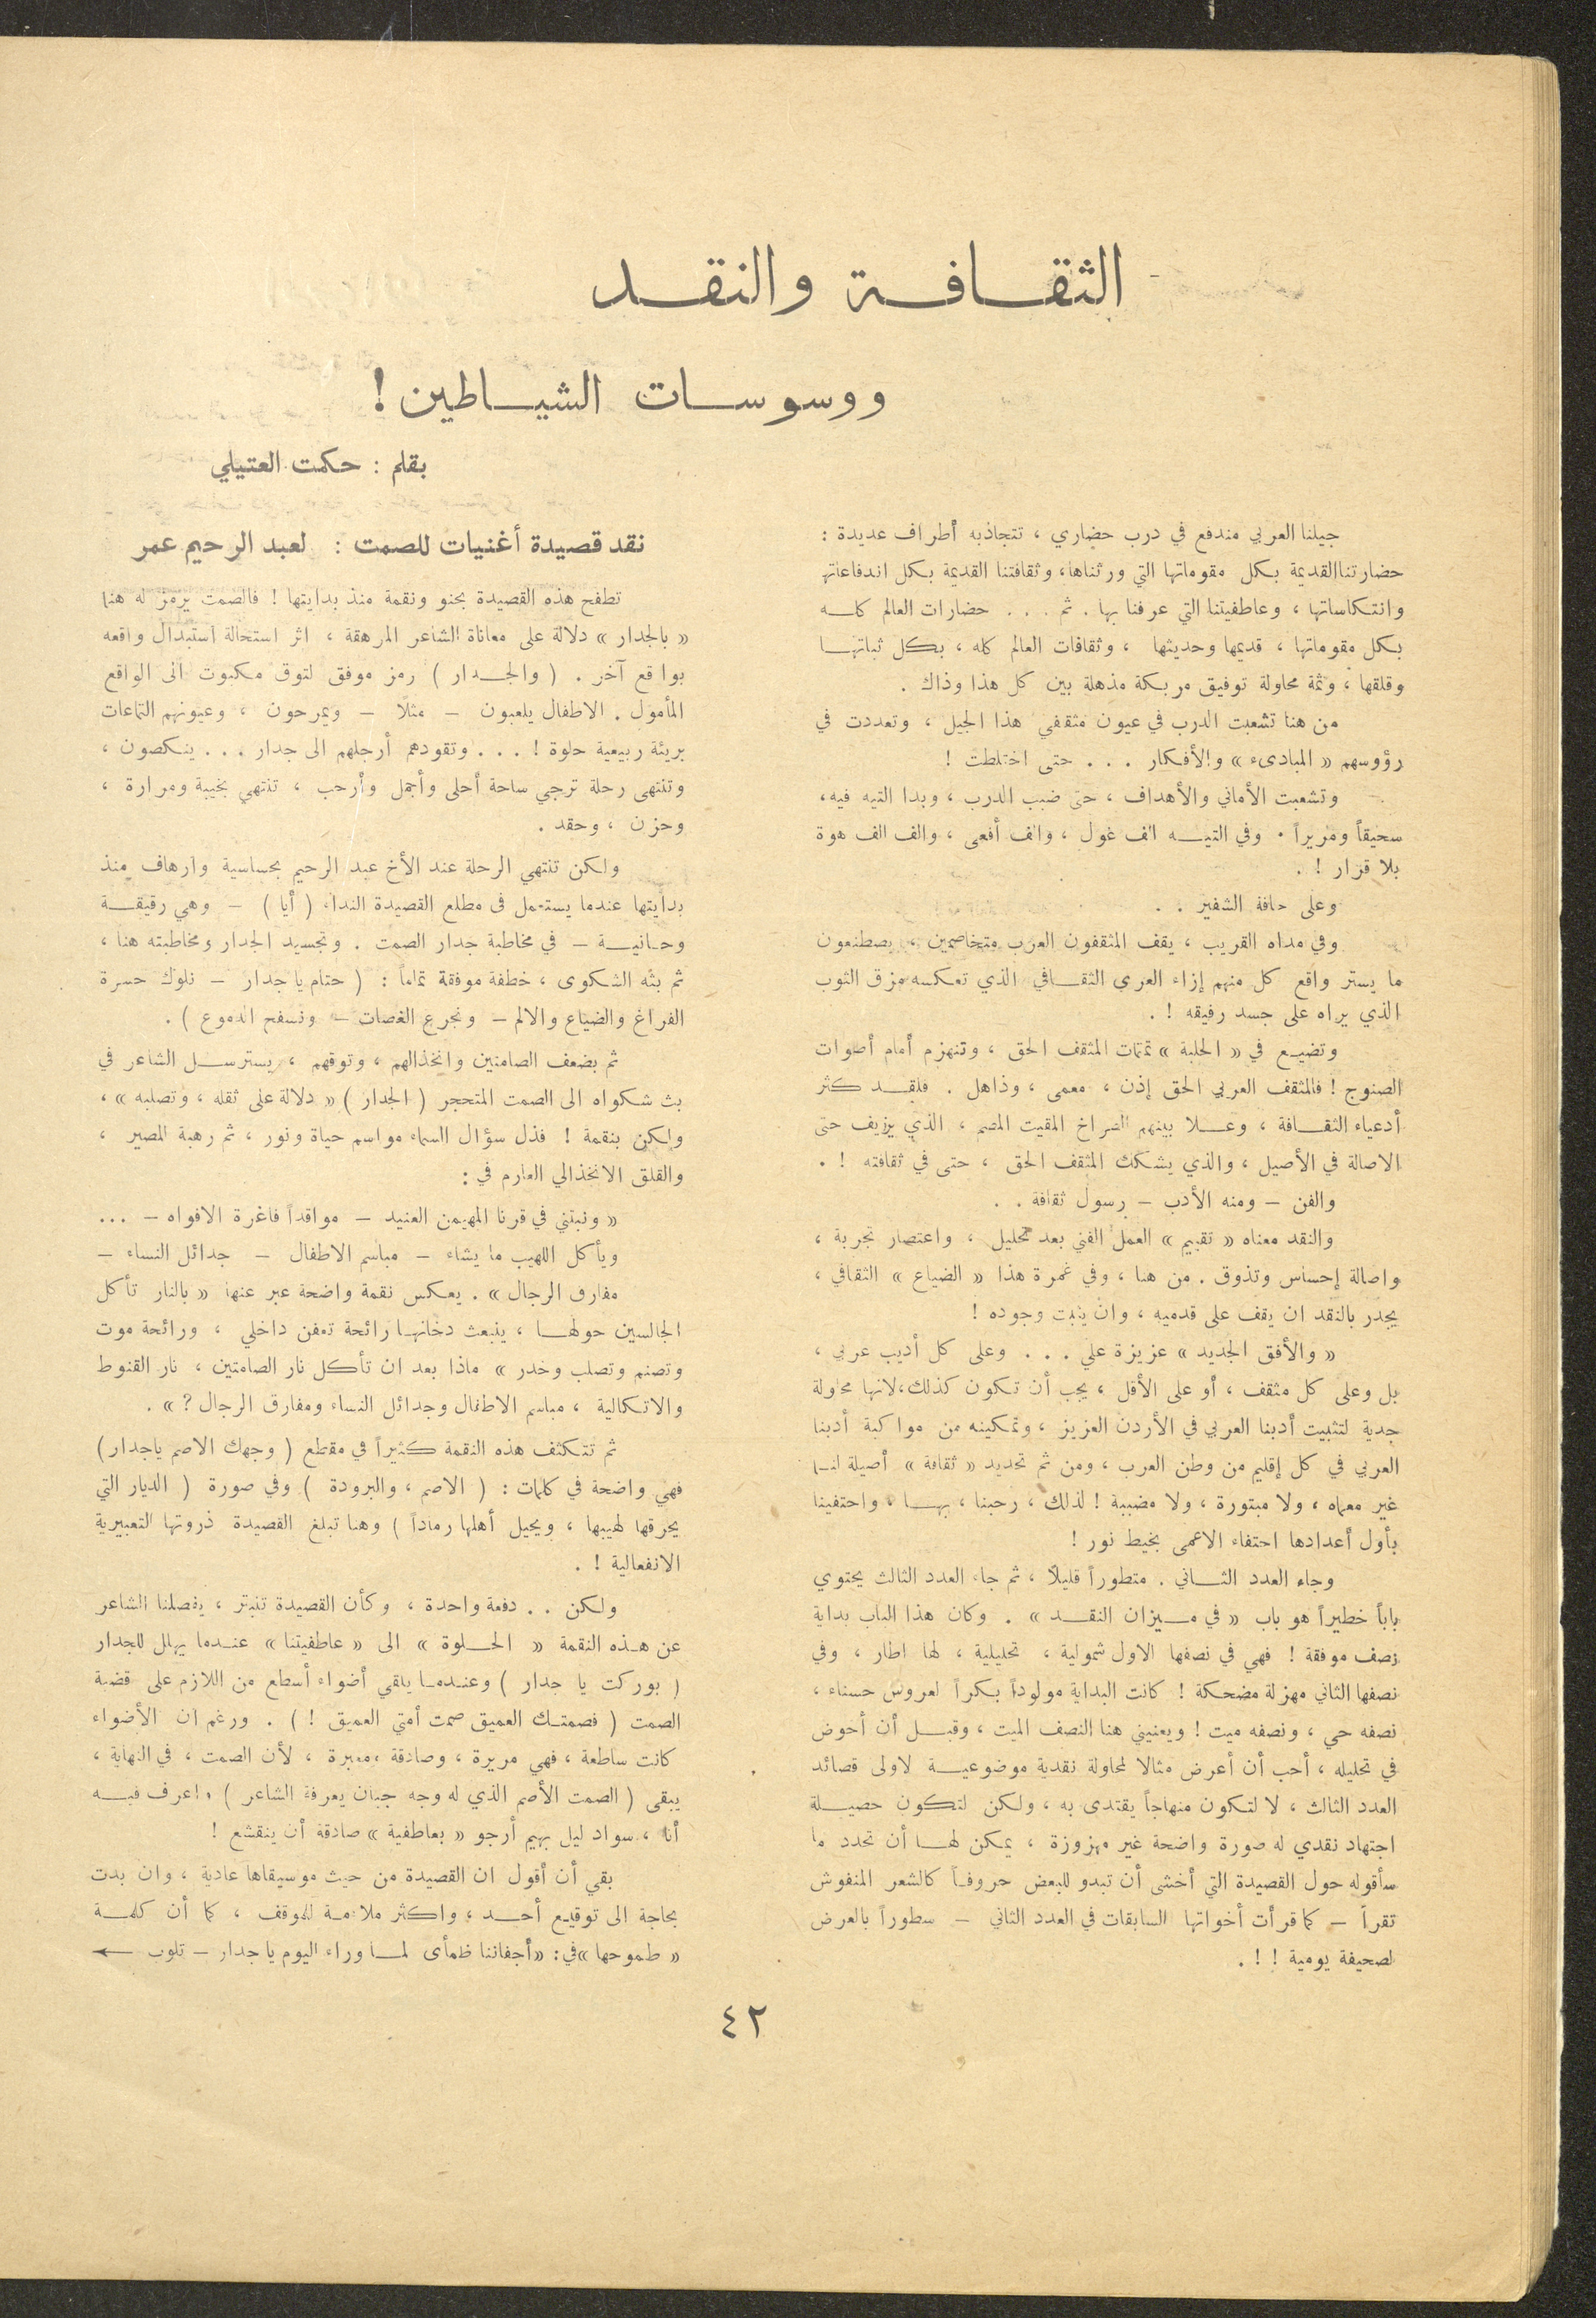 الثقافة والنقد
ووسوسات الشياطين !
بقلم : حكمت العتيلي
جيلنا العربي مندفع في درب حضاري ، تتجاذبه أطراف عديدة :
حضارتنا القديمة بكل مقوماتها التي ورثناها، وثقافتنا القديمة بكل اندفاعاتها
وانتكاساتها ، وعاطفيتنا التي عرفنا بها . ثم . . . حضارات العالم كله
بكل مقوماتها ، قديمها وحديثها ، وثقافات العالم كله ، بكل ثباتها
وقلقها ، وثمة محاولة توفيق مربكة مذهلة بين كل هذا وذاك .
من هنا تشعبت الدرب في عيون مثقفي هذا الجيل ، وتعددت في
رؤوسهم « المبادىء » والأفكار . . . حتى اختلطت !
وتشعبت الأماني والأهداف ، حتى ضبب الدرب ، وبدا التيه فيه،
سحيقاً ومريراً . وفي التيه الف غول ، والف أفعى ، والف الف هوة
بلا قرار ! .
وعلى حافة الشفير . .
وفي مداه القريب ، يقف المثقفون العرب متخاصمين ، يصطنعون
ما يستر واقع كل منهم إزاء العري الثقافي الذي تعكسه مزق الثوب
الذي يراه على جسد رفيقه ! .
وتضيع في « الحلبة » تمتمات المثقف الحق ، وتنهزم أمام أصوات
الصنوج ! فالمثقف العربي الحق إذن ، معمى ، وذاهل . فلقد كثر
أدعياء الثقافة ، وعلا بينهم الصراخ المقيت المصم ، الذي يزيف حتى
الاصالة في الأصيل ، والذي يشكك المثقف الحق ، حتى في ثقافته ! .
والفن – ومنه الأدب – رسول ثقافة . .
والنقد معناه « تقييم » العمل الفني بعد تحليل ، واعتصار تجربة ،
واصالة إحساس وتذوق . من هنا ، وفي غمرة هذا « الضياع » الثقافي ،
يجدر بالنقد ان يقف على قدميه ، وان يثبت وجوده !
« والأفق الجديد » عزيزة علي . . . وعلى كل أديب عربي ،
بل وعلى كل مثقف ، أو على الأقل ، يجب أن تكون كذلك، لانها محاولة
جدية لتثبيت أدبنا العربي في الأردن العزيز ، وتمكينه من مواكبة أدبنا
العربي في كل إقليم من وطن العرب ، ومن ثم تحديد « ثقافة » أصيلة لنا
غير معماه ، ولا مبتورة ، ولا مضببة ! لذلك ، رحبنا ، بها ، واحتفينا
بأول أعدادها احتفاء الاعمى بخيط نور !
وجاء العدد الثاني . متطوراً قليلاً ، ثم جاء العدد الثالث يحتوي
باباً خطيراً هو باب « في ميزان النقد » . وكان هذا الباب بداية
نصف موفقة ! فهي في نصفها الاول شمولية ، تحليلية ، لها اطار ، وفي
نصفها الثاني مهزلة مضحكة ! كانت البداية مولوداً بكراً لعروس حسناء ،
نصفه حي ، ونصفه ميت ! ويعنيني هنا النصف الميت ، وقبل أن أخوض
في تحليله ، أحب أن أعرض مثالا لمحاولة نقدية موضوعية لاولى قصائد
العدد الثالث ، لا لتكون منهاجاً يقتدى به ، ولكن لتكون حصيلة
اجتهاد نقدي له صورة واضحة غير مهزوزة ، يمكن لها أن تحدد ما
سأقوله حول القصيدة التي أخشى أن تبدو للبعض حروفاً كالشعر المنفوش
تقرأ – كما قرأت أخواتها السابقات في العدد الثاني – سطوراً بالعرض
لصحيفة يومية ! ! .
نقد قصيدة أغنيات للصمت : لعبد الرحيم عمر
تطفح هذه القصيدة بحنو ونقمة منذ بدايتها ! فالصمت يرمز له هنا
« بالجدار » دلالة على معاناة الشاعر المرهقة ، اثر استحالة استبدال واقعه
بواقع آخر . ( والجدار ) رمز موفق لتوق مكبوت الى الواقع
المأمول . الاطفال يلعبون – مثلاً – ويمرحون ، وعيونهم التماعات
بريئة ربيعية حلوة ! . . . وتقودهم أرجلهم الى جدار . . . ينكصون ،
وتنتهى رحلة ترجي ساحة أحلى وأجمل وأرحب ، تنتهي بخيبة ومرارة ،
وحزن ، وحقد .
ولكن تنتهي الرحلة عند الأخ عبد الرحيم بحساسية وارهاف منذ
بدايتها عندما يستعمل في مطلع القصيدة النداء ( أيا ) – وهي رقيقة
وحانية – في مخاطبة جدار الصمت . وتجسيد الجدار ومخاطبته هنا ،
ثم بثه الشكوى ، خطفة موفقة تماماً : ( حتام يا جدار – نلوك حسرة
الفراغ والضياع والالم – ونجرع الغصات – ونسفح الدموع ) .
ثم بضعف الصامتين وانخذالهم ، وتوقهم ، يسترسل الشاعر في
بث شكواه الى الصمت المتحجر ( الجدار ) « دلالة على ثقله ، وتصلبه » ،
ولكن بنقمة ! فذل سؤال السماء مواسم حياة ونور ، ثم رهبة المصير ،
والقلق الانخذالي العارم في :
« ونبتني في قرنا المهيمن العنيد – مواقداً فاغرة الافواه – ...
ويأكل اللهيب ما يشاء – مباسم الاطفال – جدائل النساء –
مفارق الرجال » . يعكس نقمة واضحة عبر عنها « بالنار تأكل
الجالسين حولها ، ينبعث دخانها رائحة تعفن داخلي ، ورائحة موت
وتصنم وتصلب وخدر » ماذا بعد ان تأكل نار الصامتين ، نار القنوط
والاتكالية ، مباسم الاطفال وجدائل النساء ومفارق الرجال ? » .
ثم تتكثف هذه النقمة كثيراً في مقطع ( وجهك الاصم ياجدار )
فهي واضحة في كلمات : ( الاصم ، والبرودة ) وفي صورة ( الديار التي
يحرقها لهيبها ، ويحيل أهلها رماداً ) وهنا تبلغ القصيدة ذروتها التعبيرية
الانفعالية ! .
ولكن . . دفعة واحدة ، وكأن القصيدة تنبتر ، يفصلنا الشاعر
عن هذه النقمة « الحلوة » الى « عاطفيتنا » عندما يهلل للجدار
( بوركت يا جدار ) وعندما يلقي أضواء أسطع من اللازم على قضية
الصمت ( فصمتك العميق صمت أمتي العميق ! ) . ورغم ان الأضواء
كانت ساطعة ، فهي مريرة ، وصادقة ،معبرة ، لأن الصمت ، في النهاية ،
يبقى ( الصمت الأصم الذي له وجه جبان يعرفة الشاعر ) ، اعرف فيه
أنا ، سواد ليل بهيم أرجو « بعاطفية » صادقة أن ينقشع !
بقي أن أقول ان القصيدة من حيث موسيقاها عادية ، وان بدت
بحاجة الى توقيع أحد ، واكثر ملاءمة للموقف ، كما أن كلمة
« طموحها » في : « أجفاننا ظمأى لما وراء اليوم يا جدار – تلوب ←
٤٢